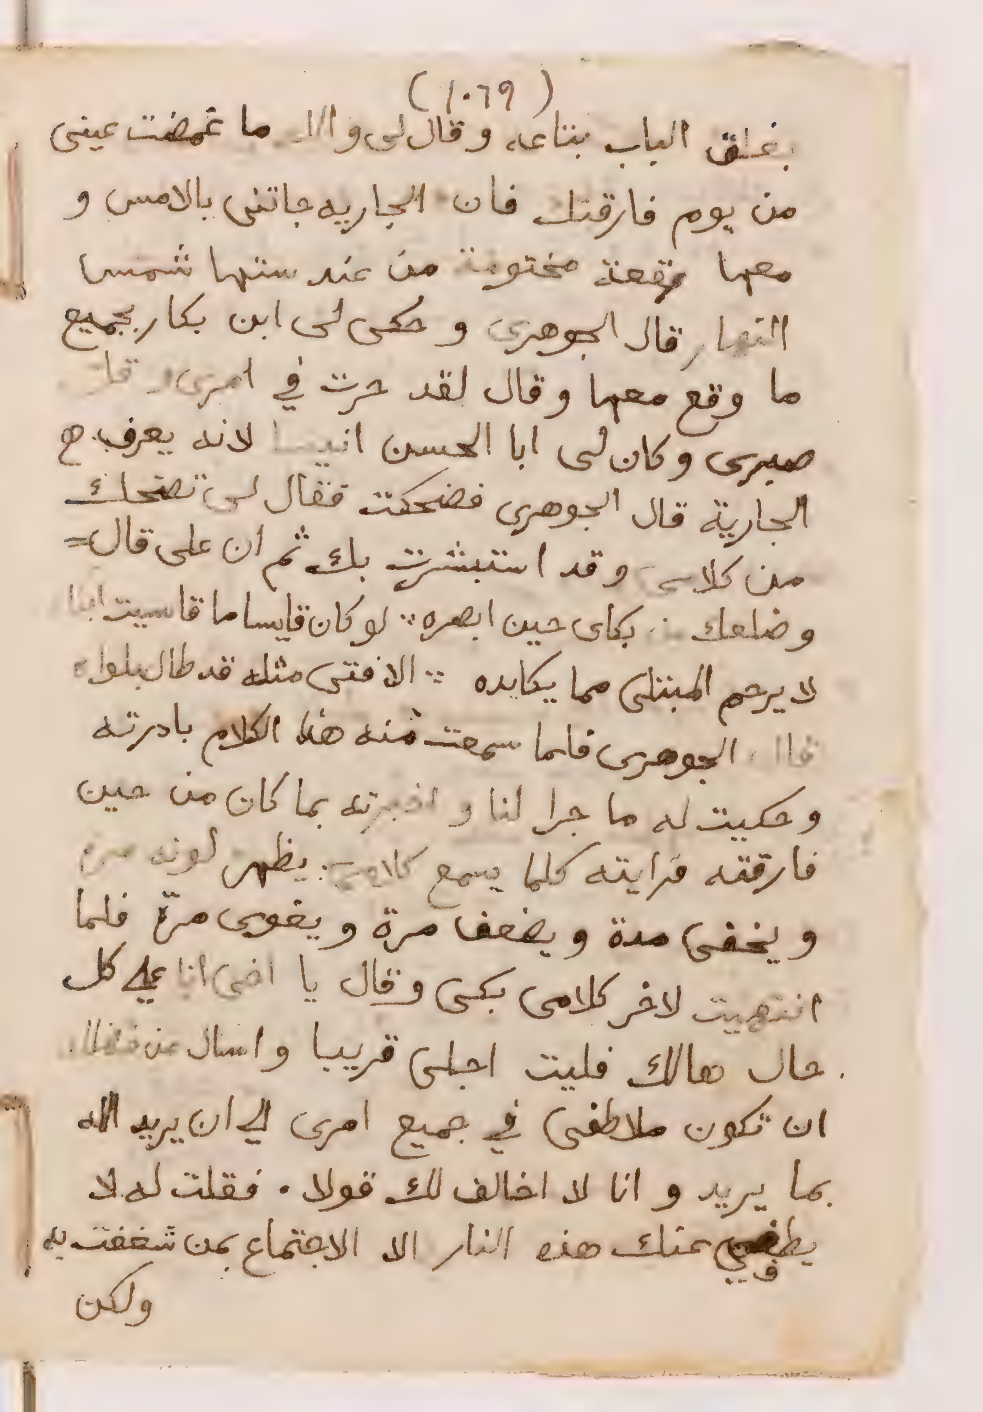 (١٠٦٩)
بغلق الباب بتاعه وقال لى والله ما غمضت عينى
من يوم فارقتك فان الجاريه جاتنى بالامس و
معها رقعة مختومة من عند ستها شمس
النهار قال الجوهرى و حكى لى ابن بكار بجميع
ما وقع معها وقال لقد حرت في امرى و قل
صبرى وكان لى ابا الحسن انيسا لانه يعرف
الجارية قال الجوهرى فضحكت فقال لى تضحك
من كلامى وقد استبشرت بك ثم ان على قال=
وضاحك من بكاى حين ابصره :: لو كان قايسا ما قاسيت ابكاه
لا يرحم المبتلى مما يكابده :: الا فتى مثله قد طال بلواه
قال الجوهرى فلما سمعت منه هذا الكلام بادرته
وحكيت له ما جرا لنا و اخبرته بما كان من حين
فارقته فرايته كلما يسمع كلامى يظهر لونه مرة
و يخفى مدة و يضعف مرة و يقوى مرة فلما
انتهيت لاخر كلامى بكى وقال يا اخى انا على كل
حال هالك فليت اجلى قريبا و اسال من فضلك
ان تكون ملاطفى في جميع امرى الى ان يريد الله
بما يريد و انا لا اخالف لك قولا . فقلت له لا
يطفى عنك هذه النار الا الاجتماع بمن شغفت به
ولكن